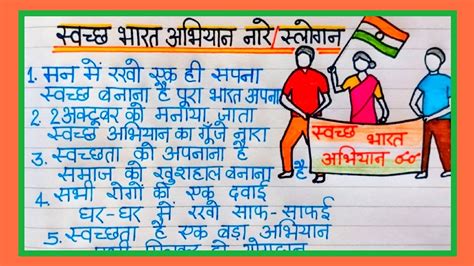 स्वच्छ भारत अभियान नारे/स्लोगन
1. मन में रखो एक ही सपना
स्वच्छ बनाना है पूरा भारत अपना
2. 2 अक्टूबर को मनाया जाता
स्वच्छ अभियान का गूँजे नारा
3. स्वच्छता को अपनाना है
समाज को खुशहाल बनाना है
4. सभी रोगों की एक दवाई
घर-घर में रखो साफ-सफाई
5. स्वच्छता है एक बड़ा अभियान
स्वच्छ भारत
अभियान